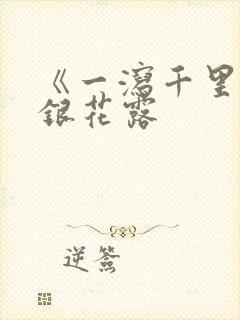 《一瀉千里
銀花露
逆簽